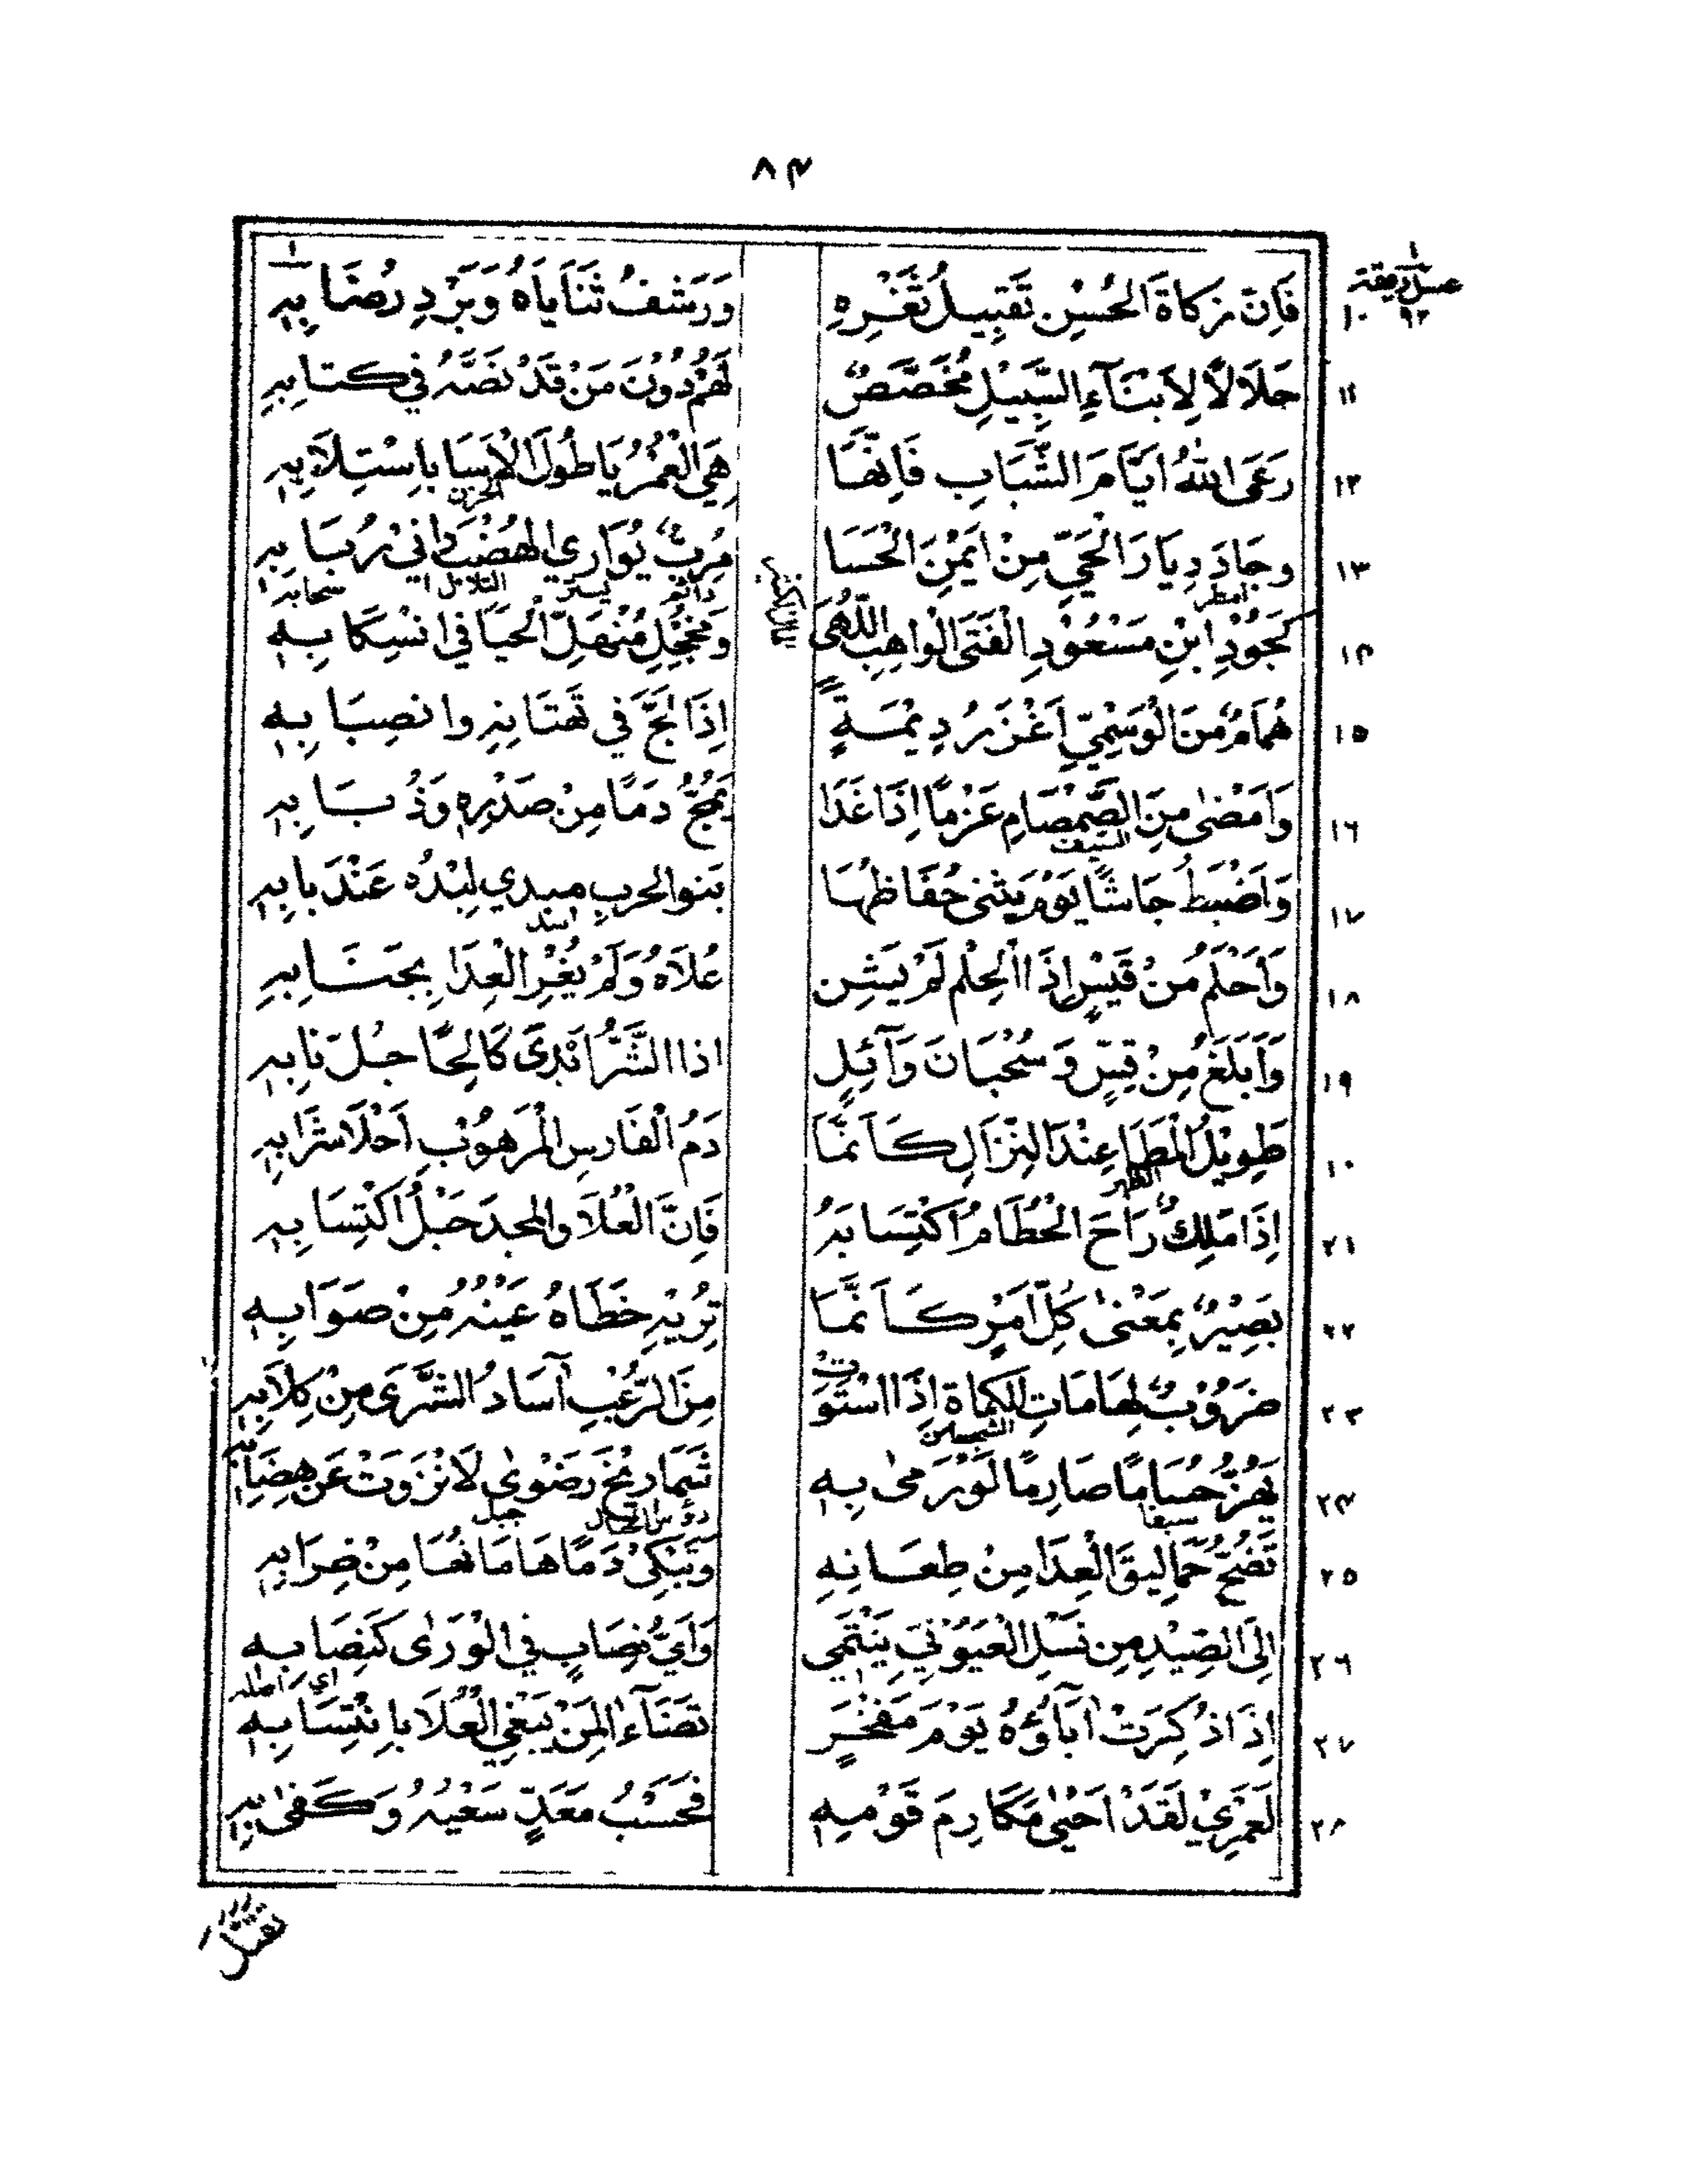 ٨٤
فَاِنّ زكاةَ الحُسْنِ تَقبِيلُ ثَغْرِهِ وَرَشفُ ثَنَايَاهُ وَبَرْدِ رُضَابِهِ ١٠
حَلَالًا لِاَبنَآءِ السَّبِيْلِ مُخَصَّصٌ لَهُمْ دُوْنَ مَنْ قَدْ نَصَّهُ في كتابِهِ ١١
رَعَى اللّٰهُ اَيَّامَ الشَّبَابِ فَاِنَّهَا هِيَ الْعُمْرُ يَا طُوْلَ الْاَسَا بِاسْتِلَابِهِ ١٢
الحزن
وجَادَ دِيَارَ الْحَيِّ مِنْ اَيْمَنِ الْحَسَا مُرِبٌّ يُوَارِي الهُضْبَ دَانِيْ رَبَابِهِ ١٣
امطر دائم يستر التلال سحابه
كَجُوْدِ ابْنِ مَسْعُوْدِ الْفَتَى الْوَاهِبِ اللُّهٰى وَمُخْجِلِ مُنْهَلِّ الْحَيَا في انْسِكَابِهِ ١٤
هُمَامٌ مِنَ الْوَسْمِيِّ اَغْزَرُ دِيْمَةٍ اِذَا لَجَّ في تَهتَانِهِ وانصِبَابِهِ ١٥
وَاَمْضٰى مِنَ الصَّمْصَامِ عَزْمًا اِذَا غَدَا يَمُجُّ دَمًا مِنْ صَدْرِهِ وَذُبَابِهِ ١٦
السيف
وَاَضْبَطُ جَاشًا يَوْمَ يَثنى حُفَاظُهَا بَنو الحربِ مبدي لِبْدُه عَنْدَ بابِهِ ١٧
اسد
وَاَحْلَمُ مِنْ قَيْسٍ اِذَا الْحِلْم لَمْ يَشِن عُلَاهُ وَلَمْ يُغْرِ الْعِدَا بِجَنَابِهِ ١٨
وَاَبلَغُ مِنْ قِسٍّ وَسُحْبَانَ وَآئِلٍ اذا الشَّرُّ اَبْدَى كَالِحًا جُلّ نابِهِ ١٩
طَوِيْلُ الْمَطَا عِنْدَ النِزَالِ كَاَنَّمَا دَمُ الْفَارسِ الْمَرهُوْبِ اَحْلَا شَرَابِهِ ١٠
الظهر
اِذَا مَلِكٌ رَاحَ الْحُطَامُ اكْتِسَابَهُ فَاِنَّ الْعُلَا والمجدَ حَبْلُ اكْتِسَابِهِ ٢١
بَصِيْرٌ بِمَعْنٰى كُلِّ اَمْرٍ كَاَنَّمَا تُرِيْهِ خَطَاهُ عَيْنُهُ مِنْ صَوَابِهِ ٢٢
ضَرُوْبٌ لِهَامَاتِ الكماة اِذَا اسْتَوَتْ مِنَ الرُعْبِ آسَادُ الشَّرَى مِنْ كِلَابِهِ ٢٣
الشجعان
يَهُزُّ حُسَامًا صَارِمًا لَوْ رَمٰى بِهِ شَمَارِيْخَ رَضْوٰى لَانْزَوَتْ عَن هِضَابِهِ ٢٤
سيفا رؤس الجبال جبل
تَضُجُّ حَمَالِيقَ الْعِدَا مِنْ طِعَانِهِ وَتَبْكِيْ دَمًا هَامَاتُهَا مِنْ ضِرَابِهِ ٢٥
اِلَى الصِّيْدِ مِن نَسْلِ الْعُيَوْنِيّ يَنْتَمِي وَاَيُّ نِصَابٍ في الْوَرٰى كَنِصَابِهِ ٢٦
اي اصله
اِذَا ذُكِرَتْ اٰبَآؤُهُ يَوْمَ مَفْخَرٍ تَضَآءَ المَنْ يَبْغِي الْعُلَا بِانْتِسَابِهِ ٢٧
لَعَمْرِيْ لَقَدْ اَحْيٰى مَكَارِمَ قَوْمِهِ فَحَسْبُ مَعَدٍّ سَعْيُهُ وَكَفٰى بِهِ ٢٨